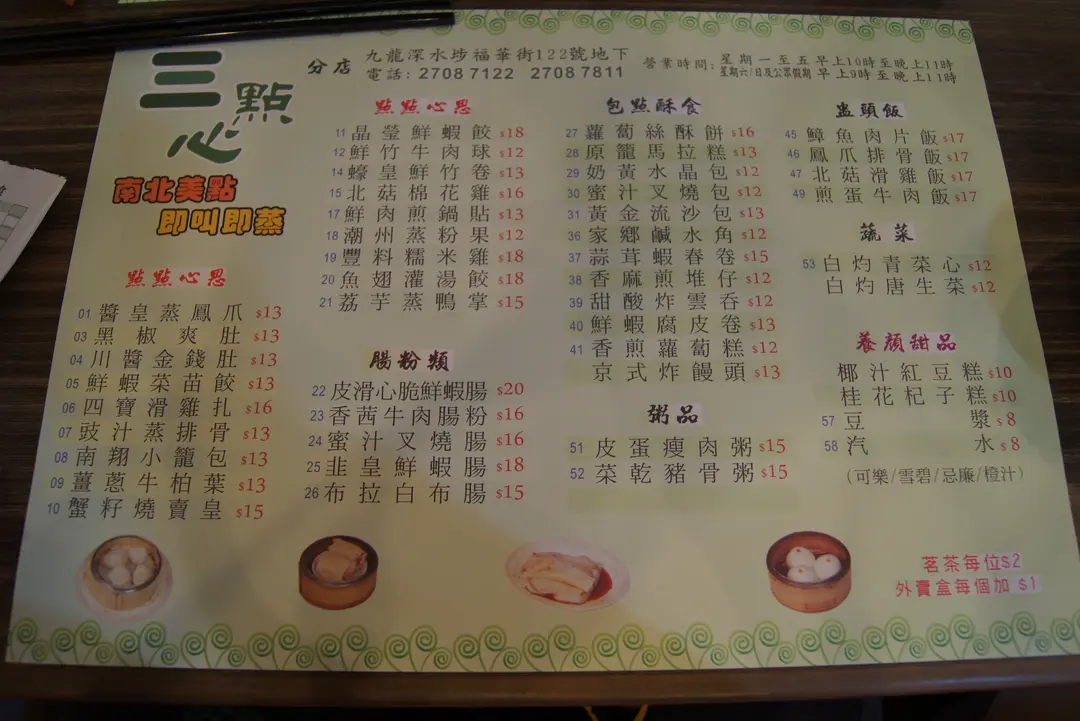 三點心
分店
九龍深水埗福華街122號地下
電話: 2708 7122 2708 7811
營業時間:
星期一至五早上10時至晚上11時
星期六/日及公眾假期 早上9時至晚上11時
南北美點
即叫即蒸
點點心思
01 醬皇蒸鳳爪 $13
03 黑椒爽肚 $13
04 川醬金錢肚 $13
05 鮮蝦菜苗餃 $13
06 四寶滑雞扎 $16
07 豉汁蒸排骨 $13
08 南翔小籠包 $13
09 薑蔥牛柏葉 $13
10 蟹籽燒賣皇 $15
點點心思
11 晶瑩鮮蝦餃 $18
12 鮮竹牛肉球 $12
14 蠔皇鮮竹卷 $13
15 北菇棉花雞 $16
17 鮮肉煎鍋貼 $13
18 潮州蒸粉果 $12
19 豐料糯米雞 $18
20 魚翅灌湯餃 $18
21 荔芋蒸鴨掌 $15
腸粉類
22 皮滑心脆鮮蝦腸 $20
23 香茜牛肉腸粉 $16
24 蜜汁叉燒腸 $16
25 韭皇鮮蝦腸 $18
26 布拉白布腸 $15
包點酥食
27 蘿蔔絲酥餅 $16
28 原籠馬拉糕 $13
29 奶黃水晶包 $12
30 蜜汁叉燒包 $12
31 黃金流沙包 $13
36 家鄉鹹水角 $12
37 蒜茸蝦春卷 $15
38 香麻煎堆仔 $12
39 甜酸炸雲吞 $12
40 鮮蝦腐皮卷 $13
41 香煎蘿蔔糕 $12
京式炸饅頭 $13
粥品
51 皮蛋瘦肉粥 $15
52 菜乾豬骨粥 $15
盅頭飯
45 鱆魚肉片飯 $17
46 鳳爪排骨飯 $17
47 北菇滑雞飯 $17
49 煎蛋牛肉飯 $17
蔬菜
53 白灼青菜心 $12
白灼唐生菜 $12
養顏甜品
椰汁紅豆糕 $10
桂花杞子糕 $10
57 豆漿 $8
58 汽水 $8
(可樂/雪碧/忌廉/橙汁)
茗茶每位$2
外賣盒每個加 $1